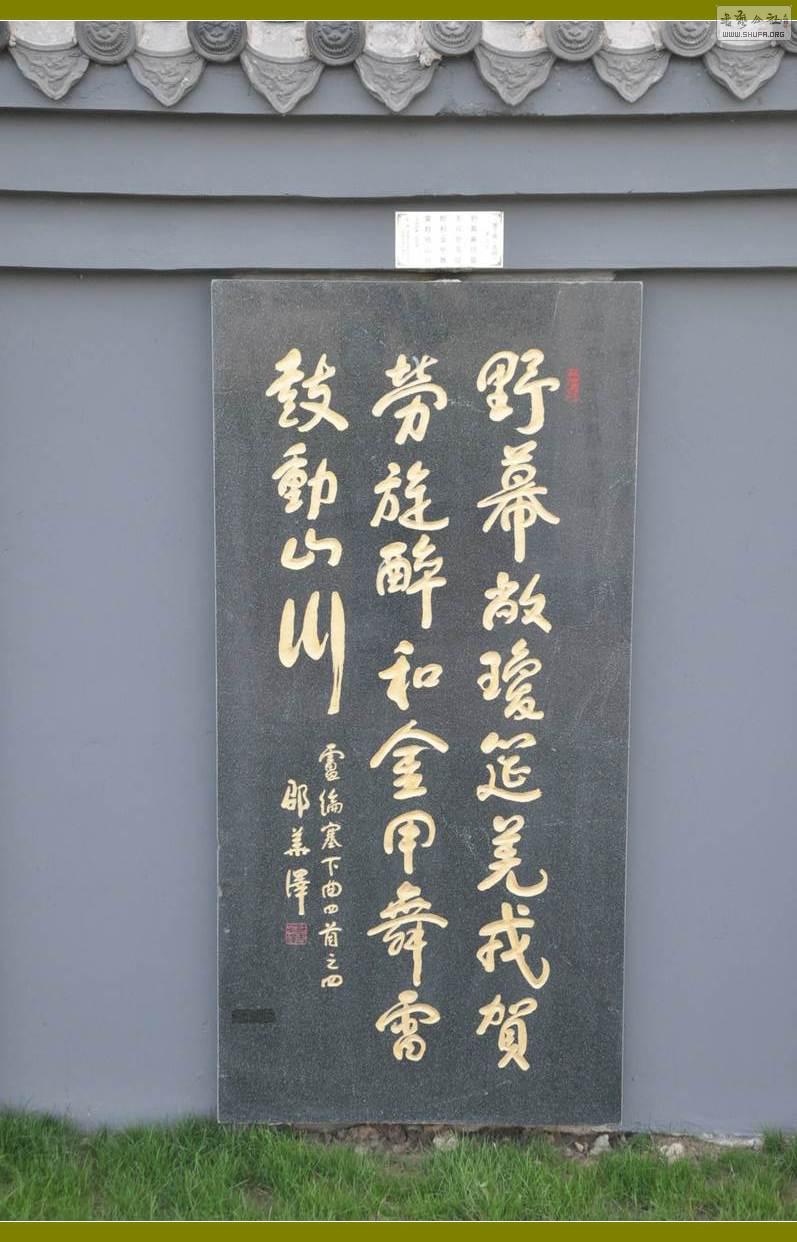 野幕敞瓊筵羌戎賀
勞旋醉和金甲舞雷
鼓動山川
盧綸塞下曲四首之四
邵華澤
WWW.SHUFA.ORG